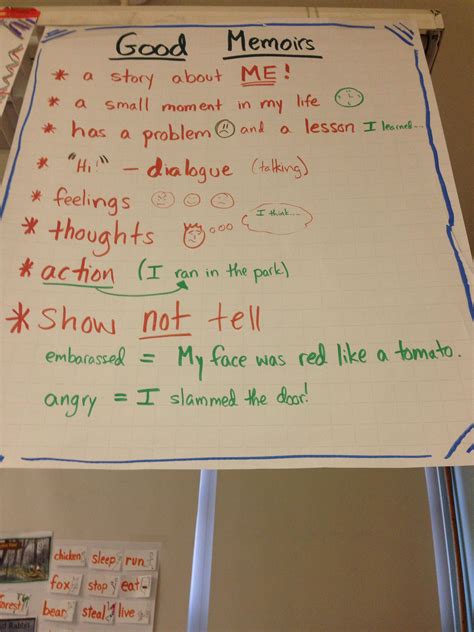 Good Memoirs
* a story about ME!
* a small moment in my life
* has a problem and a lesson I learned...
* "Hi!" - dialogue (talking)
* feelings
* thoughts I think...
* action (I ran in the park)
* Show not tell
embarassed = My face was red like a tomato.
angry = I slammed the door!
chicken sleep run
fox stop eat
forest bear steal live